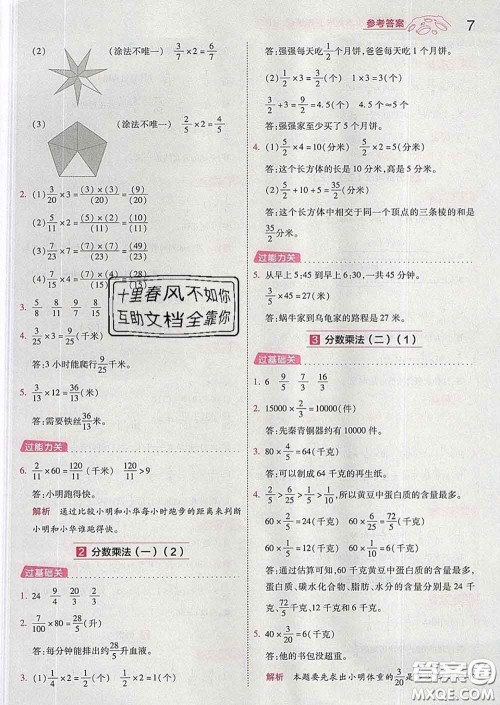 参考答案
7
(2) (涂法不唯一) 3/7×2=6/7
(3) (涂法不唯一) 2/5×2=4/5
2. (1) 2/11×3=(2)×(3)/(11)=(6)/(11)
(2) 5/18×3=(5)×(3)/(18)=(15)/(18)
(3) 7/23×7=(7)×(7)/(23)=(49)/(23)
(4) 2/15×4=(2)×(4)/(15)=(8)/(15)
3. 5/8 8/9 11/15
4. 3/25×3=9/25(千米)
答:3小时能爬行9/25千米。
5. 3/13×12=36/13(米)
答:需要铁丝36/13米。
过能力关
6. 2/11×60=120/11(千米) 120/11>9
答:小明跑得快。
解析 通过比较小明和小华每小时跑步的距离来判断
小明和小华谁跑得快。
2 分数乘法(一)(2)
过基础关
1. 24 9/4 20/3 2/3
2. 7/100×80=28/5(升)
答:每分钟能排出28/5升血液。
3. (1) 1/4×2=1/2(个) 1/2×2=1(个)
答:强强每天吃1/2个月饼,爸爸每天吃1个月饼。
(2) 1/2×3=3/2(个) 1×3=3(个)
3/2+3=9/2=4.5(个) 4.5个≈5个
答:强强家至少买了5个月饼。
4. (1) 5/2×4=10(分米) 5/2×2=5(分米)
答:这个长方体的长是10分米,高是5分米。
(2) 5/2+10+5=35/2(分米)
答:这个长方体中相交于同一个顶点的三条棱的和是
35/2分米。
过能力关
5. 从早上5:45到早上6:30,一共45分。
3/5×45=27(米)
答:蜗牛家到乌龟家的路程是27米。
3 分数乘法(二)(1)
过基础关
1. 6 9/5 7/3 16/3
2. 15000×2/3=10000(件)
答:先秦青铜器约有10000件。
3. 80×4/5=64(千克)
答:可以制成64千克的再生纸。
4. 2/5>6/25>4/25>1/10,所以黄豆中蛋白质的含量最多。
60×2/5=24(千克)
答:通过估算可知,60千克黄豆中蛋白质的含量最多,
蛋白质、碳水化合物、脂肪、水分的含量分别是24千
答:他的书包没超重。
解析 本题要先求出小明体重的3/20是
十里春风不如你
互助文档全靠你
答案圈
MXQE.COM